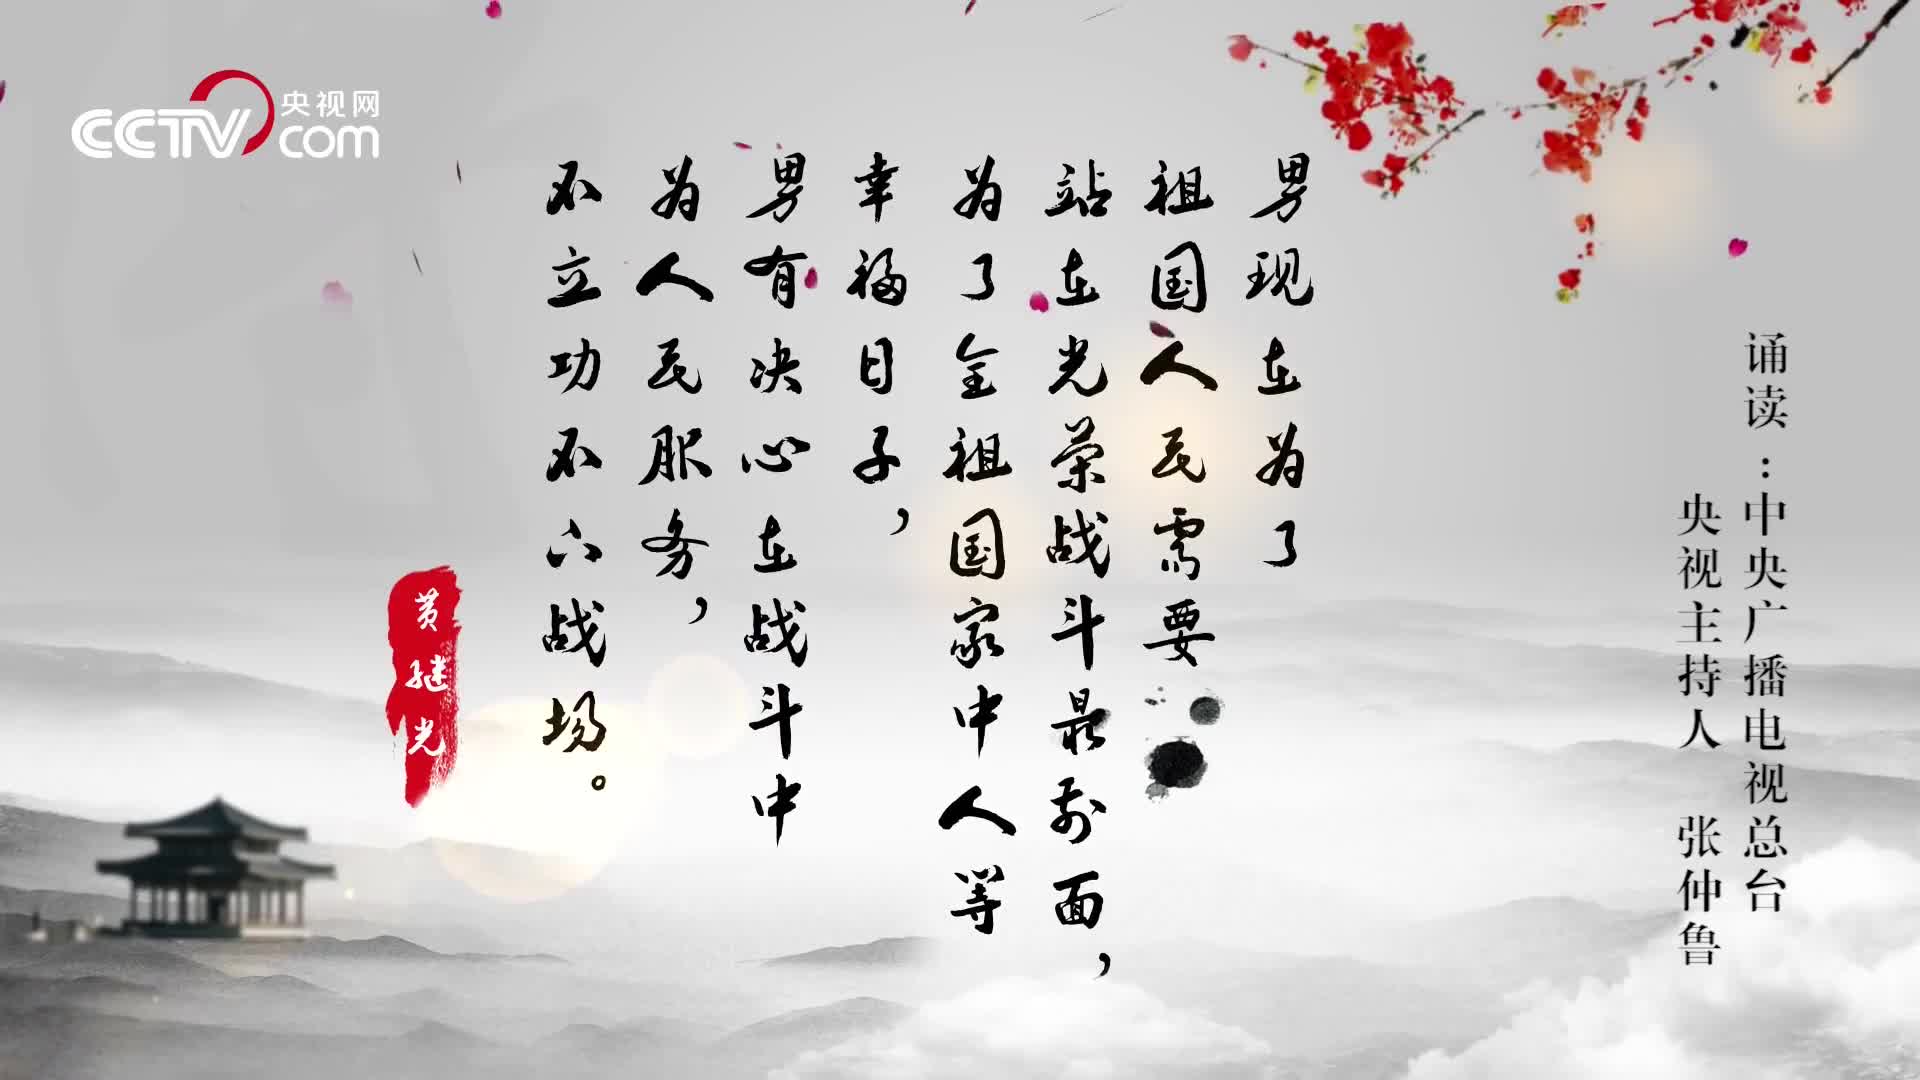 CCTV 央视网
com
男现在为了
祖国人民需要
站在光荣战斗最前面，
为了全祖国家中人等
幸福日子，
男有决心在战斗中
为人民服务，
不立功不下战场。
黄继光
诵读：中央广播电视总台
央视主持人 张仲鲁